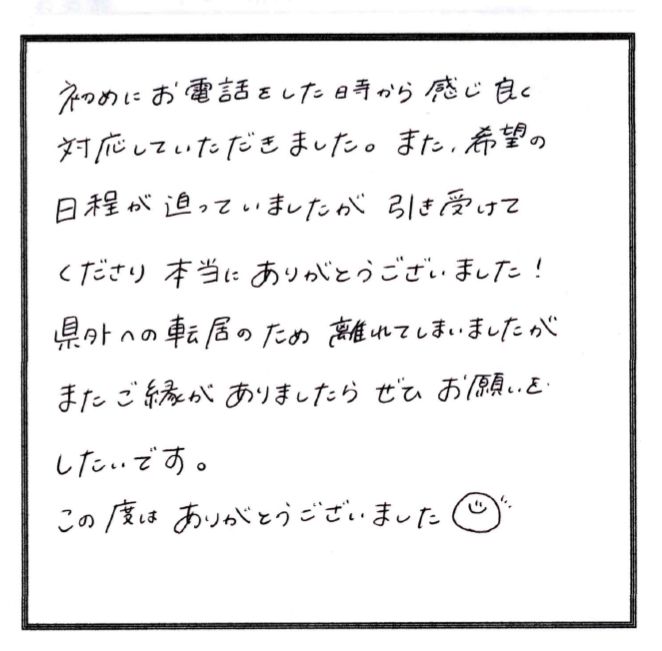 初めにお電話をした時から感じ良く
対応していただきました。また、希望の
日程が迫っていましたが 引き受けて
くださり 本当に ありがとうございました！
県外への転居のため 離れてしまいましたが
またご縁が ありましたら ぜひ お願いを
したいです。
この度は ありがとうございました